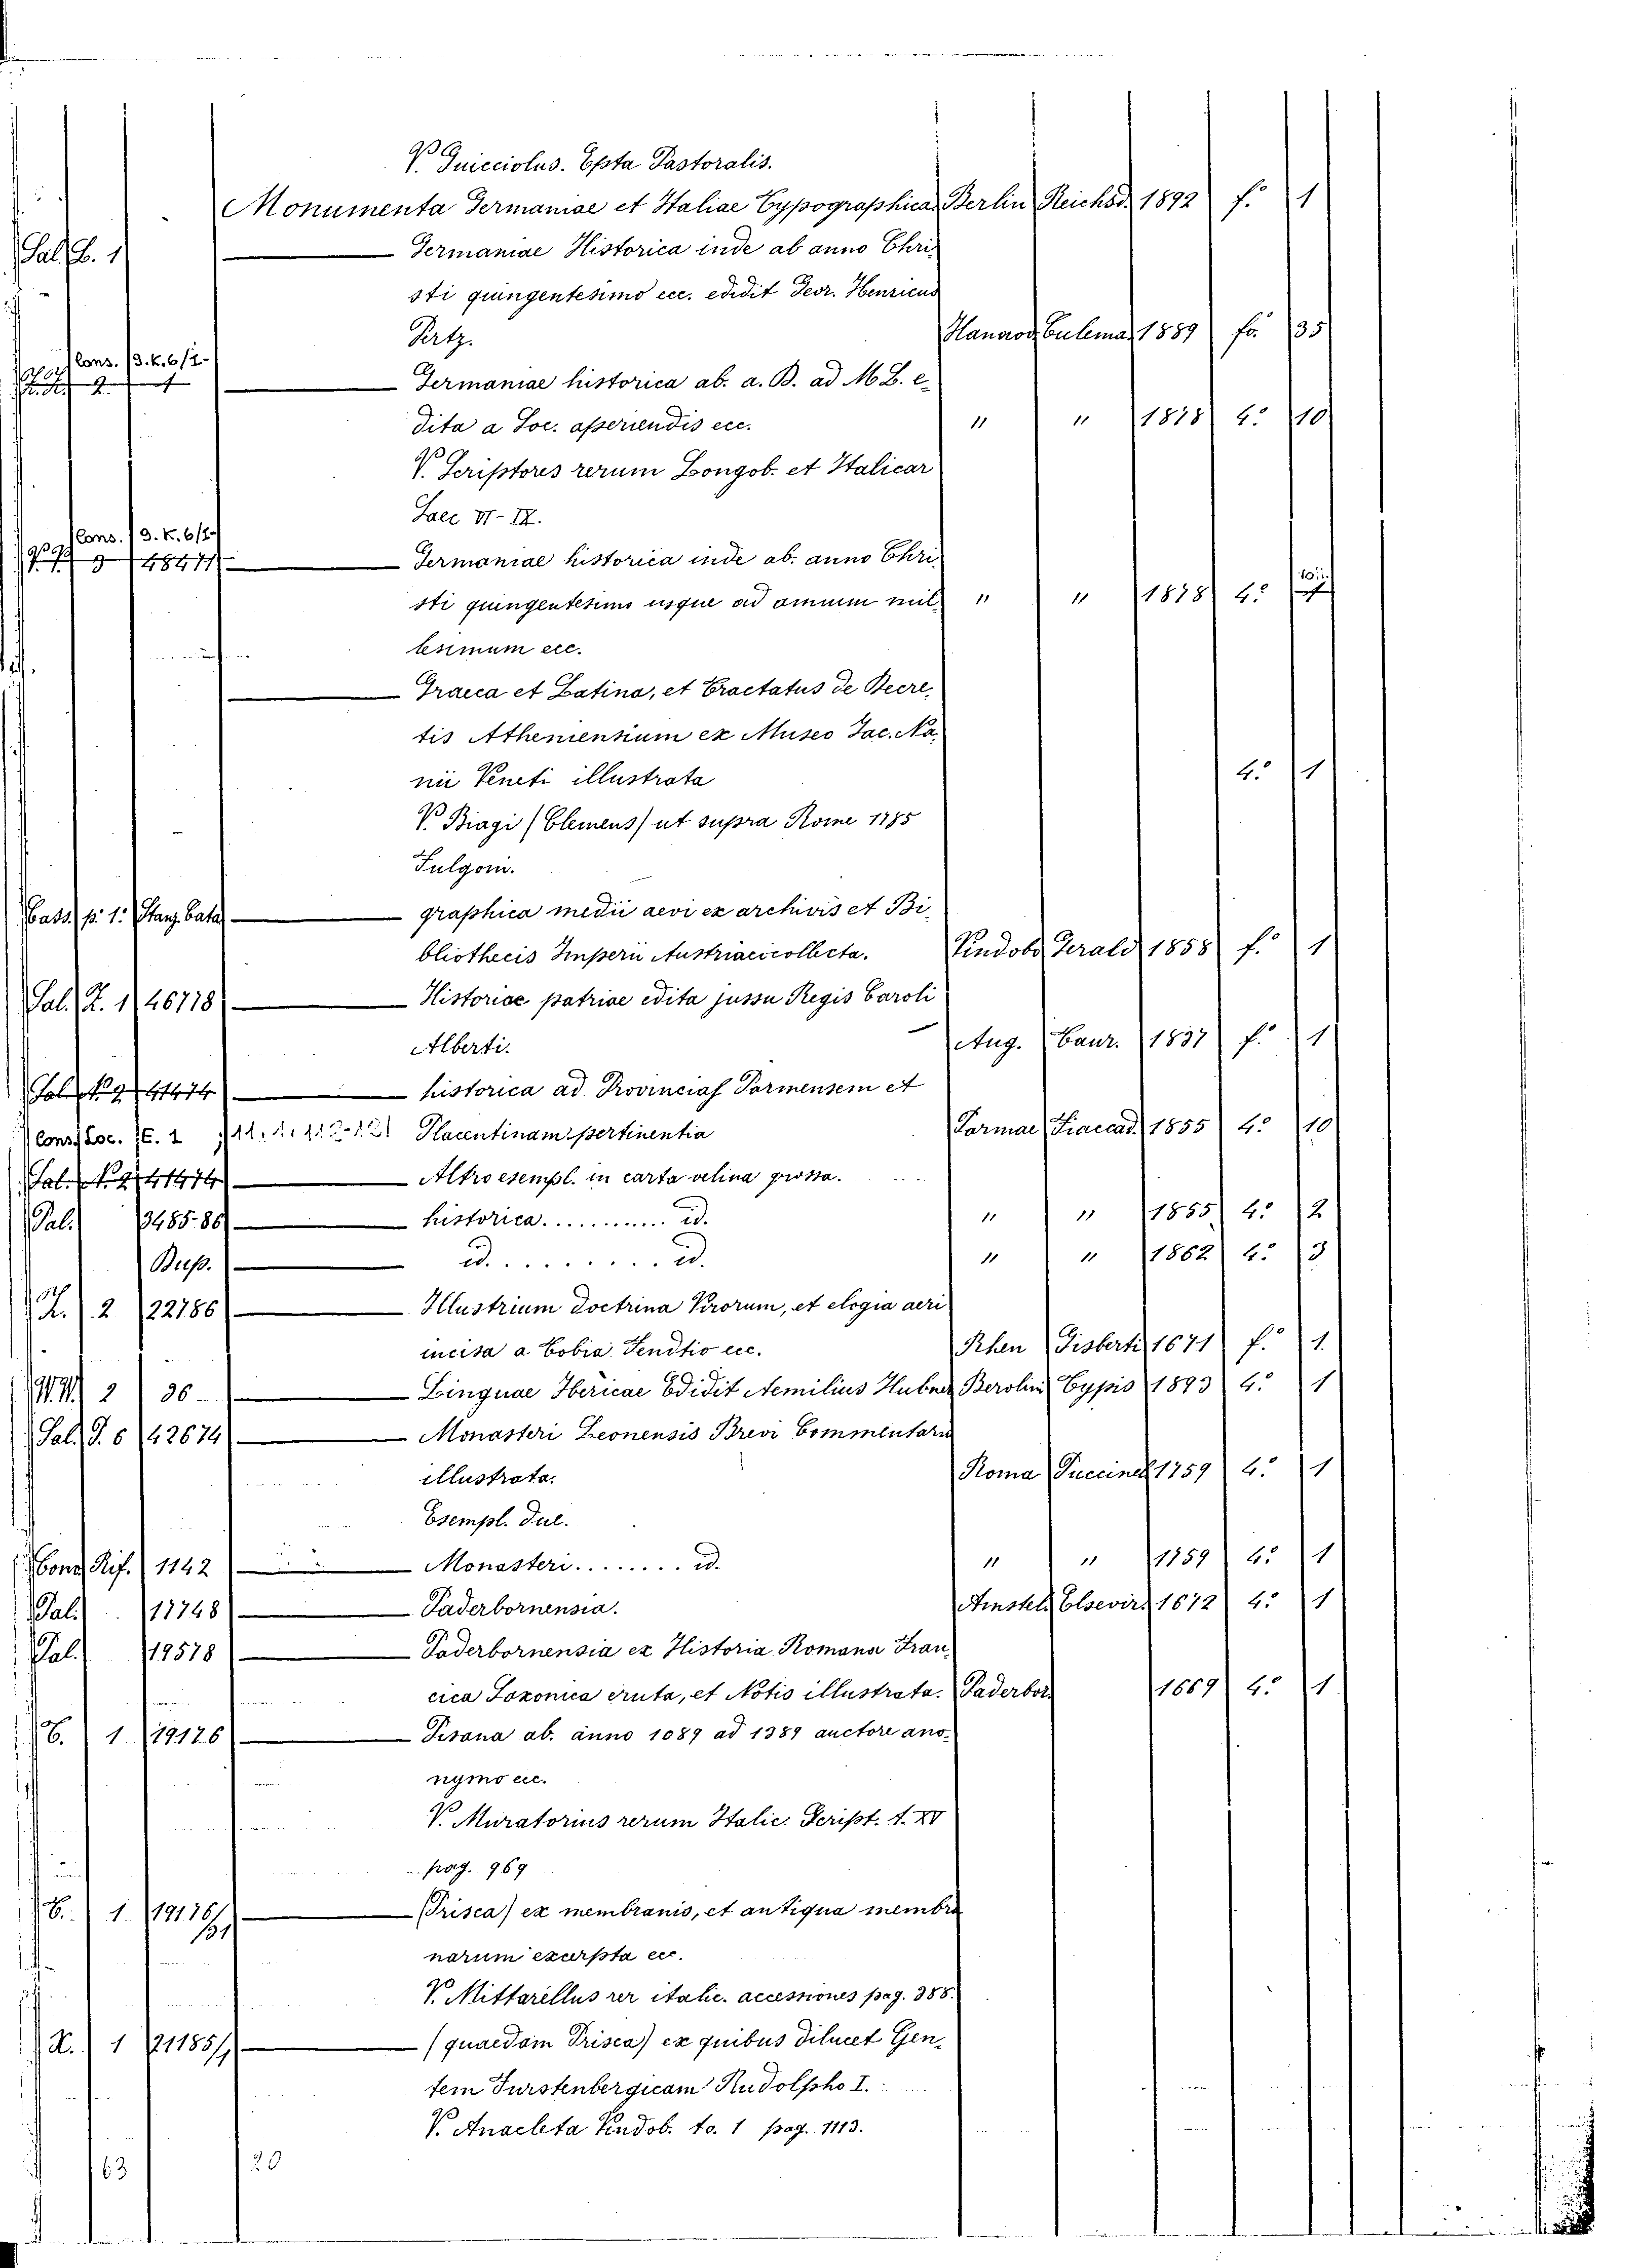 V. Guicciolus. Epsta Pastoralis.
Monumenta Germaniae et Italiae Typographica Berlin Reichsd. 1892 f.° 1
Sal. B. 1 Germaniae Historica inde ab anno Chri-
sti quingentesimo ecc. edidit Geor. Henricus
Pertz. Hannov Culema 1889 fo. 35
Cons. 3. K. 6/1-
2 1 Germaniae historica ab. a. B. ad M B. e-
dita a Soc. aperiendis ecc. " " 1878 4.° 10
V. Scriptores rerum Longob. et Italicar
Saec VI-IX.
Cons. 3. K. 6/1-
V. V. 9 48411 Germaniae historica inde ab. anno Chri-
sti quingentesimo usque ad annum mil- " " 1878 4.°
lesimum ecc.
Graeca et Latina, et Tractatus de Decre-
tis Atheniensium ex Museo Jac. Na-
nii Veneti illustrata 4.° 1
V. Biagi (Clemens) ut supra Rome 1785
Fulgoni.
Cass. p. 1. Stanz. Cata graphica medii aevi ex archivis et Bi-
bliothecis Imperii Austriaci collecta. Vindobo Gerald 1858 f.° 1
Sal. Z. 1 46778 Historiae patriae edita jussu Regis Caroli
Alberti. Aug. Taur. 1837 f.° 1
Sal. N. 9 41474 historica ad Provincias Parmensem et
Cons. Loc. E. 1 11. 1. 112-121 Placentinam pertinentia Parmae Fiaccad. 1855 4.° 10
Sal. N. 9 41474 Altro esempl. in carta velina grossa.
Pal. 3485-86 historica............ id. " " 1855 4.° 2
Bup. id.......... id. " " 1862 4.° 3
Z. 2 22786 Illustrium doctrina Virorum, et elogia aeri
incisa a Tobia Fenditio ecc. Rhen Gisberti 1671 f.° 1
W. W. 2 36 Linguae Ibericae Edidit Aemilius Hubner Berolin Typis 1893 4.° 1
Sal. J. 6 42674 Monasteri Leonensis Brevi Commentario
illustrata. Roma Puccinel 1759 4.° 1
Esempl. Dul.
Cons. Rif. 1142 Monasteri........ id. " " 1759 4.° 1
Pal. 11748 Paderbornensia. Amstel. Elsevir. 1672 4.° 1
Pal. 19578 Paderbornensia ex Historia Romana Fran-
cica Saxonica eruta, et Notis illustrata. Paderbor. 1669 4.° 1
C. 1 19176 Pisana ab. anno 1089 ad 1389 auctore ano-
nymo ecc.
V. Muratorius rerum Italic. Script. t. XV
pag. 969
C. 1 19176/31 (Prisca) ex membranis, et antiqua membra
narum excerpta ecc.
V. Mittarellus rer italic. accessiones pag. 388.
Z. 1 21185/1 (quaedam Prisca) ex quibus dilucet Gen-
tem Furstenbergicam Rudolpho I.
V. Anacleta Vindob. to. 1 pag. 1113.
63 20